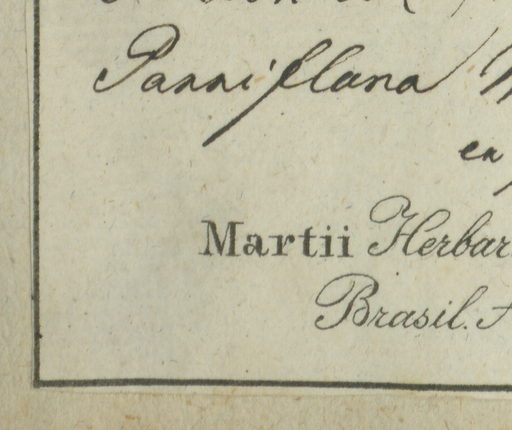 Parviflana
ex
Martii Herbar
Brasil.